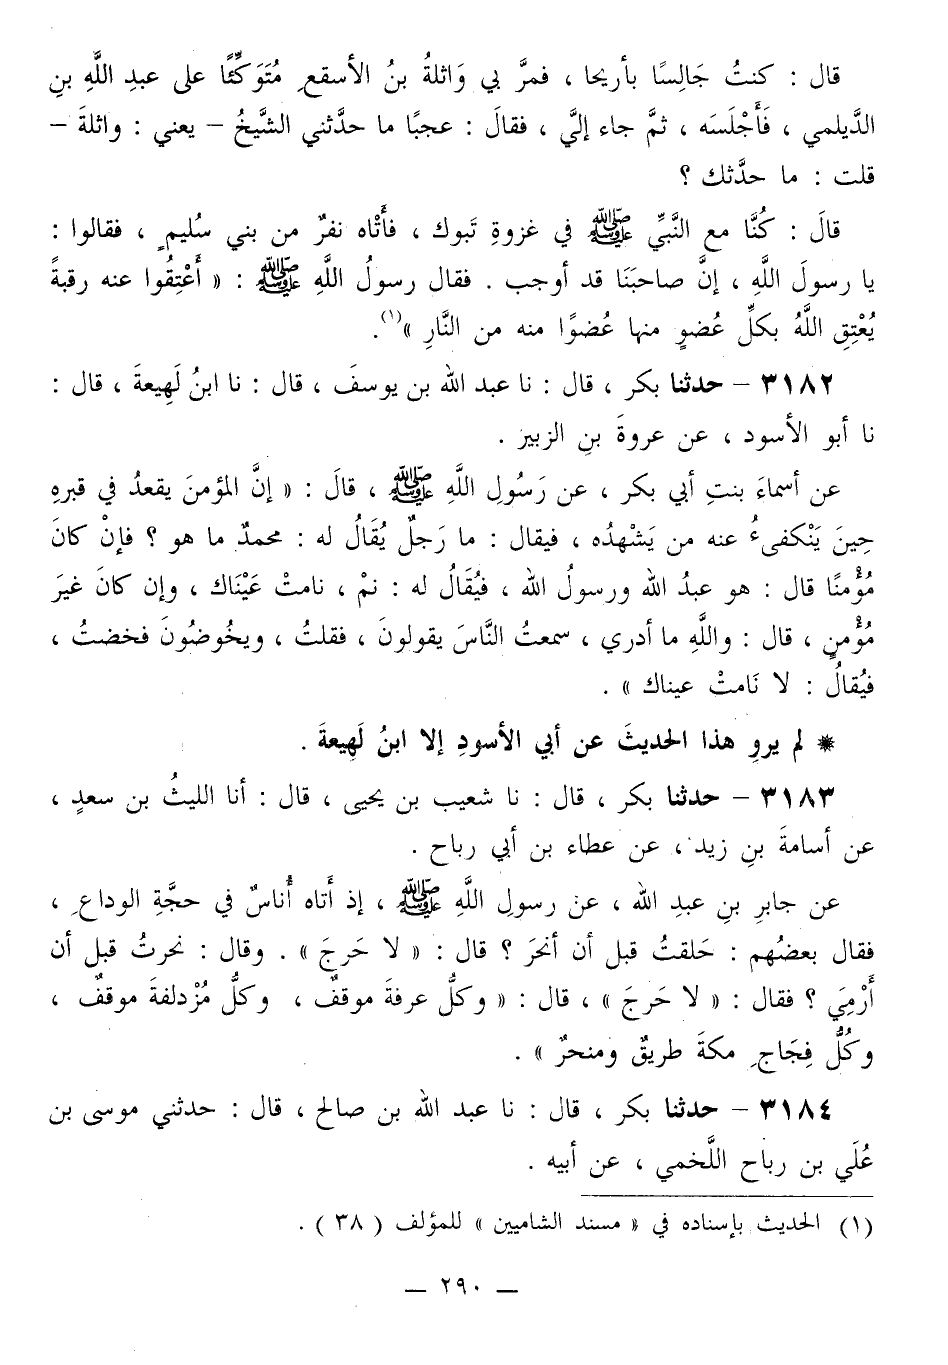 قال : كنتُ جَالِسًا بأريحا ، فمرَّ بي وَاثلةُ بنُ الأسقعِ مُتَوَكِّئًا على عبدِ اللَّهِ بنِ
الدَّيلمي ، فَأَجْلَسَه ، ثمَّ جاء إليَّ ، فقالَ : عجبًا ما حدَّثني الشَّيخُ – يعني : واثلةَ –
قلت : ما حدَّثك ؟
قالَ : كُنَّا مع النَّبيِّ ﷺ في غزوةِ تَبوك ، فأَتْاه نفرٌ من بني سُليمٍ ، فقالوا :
يا رسولَ اللَّهِ ، إنَّ صاحبَنَا قد أوجب . فقال رسولُ اللَّهِ ﷺ : « أَعْتِقُوا عنه رقبةً
يُعْتِقِ اللَّهُ بكلِّ عُضوٍ منها عُضوًا منه من النَّارِ »(١).
٣١٨٢ – حدثنا بكر ، قال : نا عبد الله بن يوسفَ ، قال : نا ابنُ لَهِيعةَ ، قال :
نا أبو الأسود ، عن عروةَ بنِ الزبير .
عن أسماءَ بنتِ أبي بكر ، عن رَسُولِ اللَّهِ ﷺ ، قالَ : « إنَّ المؤمنَ يقعدُ في قبرهِ
حِينَ يَنْكفىءُ عنه من يَشْهدُه ، فيقال : ما رَجلٌ يُقَالُ له : محمدٌ ما هو ؟ فإنْ كانَ
مُؤْمنًا قال : هو عبدُ الله ورسولُ الله ، فيُقَالُ له : نمْ ، نامتْ عَيْنَاك ، وإن كانَ غيرَ
مُؤْمنٍ ، قال : واللَّهِ ما أدري ، سمعتُ النَّاسَ يقولونَ ، فقلتُ ، ويخُوضُونَ فخضتُ ،
فيُقالُ : لا نَامتْ عيناك » .
* لم يروِ هذا الحديثَ عن أبي الأسودِ إلا ابنُ لَهِيعةَ .
٣١٨٣ – حدثنا بكر ، قال : نا شعيب بن يحيى ، قال : أنا الليثُ بن سعدٍ ،
عن أسامةَ بنِ زيد ، عن عطاء بن أبي رباح .
عن جابرِ بنِ عبدِ الله ، عن رسولِ اللَّهِ ﷺ ، إذ أَتاه أُناسٌ في حجَّةِ الوداعِ ،
فقال بعضُهم : حَلقتُ قبل أن أنحرَ ؟ قال : « لا حَرجَ » . وقال : نحرتُ قبل أن
أَرْمِيَ ؟ فقال : « لا حَرجَ » ، قال : « وكلُّ عرفةَ موقفٌ ، وكلُّ مُزْدلفةَ موقفٌ ،
وكُلُّ فِجَاجِ مكةَ طريقٌ ومنحرٌ » .
٣١٨٤ – حدثنا بكر ، قال : نا عبد الله بن صالح ، قال : حدثني موسى بن
عُلَي بن رباح اللَّخمي ، عن أبيه .
(١) الحديث بإسناده في « مسند الشاميين » للمؤلف ( ٣٨ ) .
— ٢٩٠ —